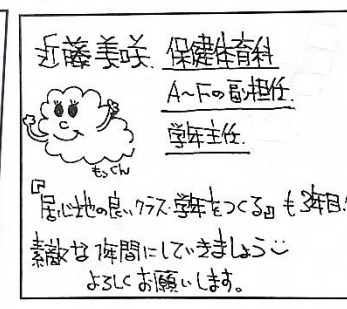 近藤美咲. 保健体育科
A~Fの副担任.
学年主任.
もっくん
『居心地の良いクラス・学年をつくる』も3年目!
素敵な1年間にしていきましょう
よろしくお願いします。